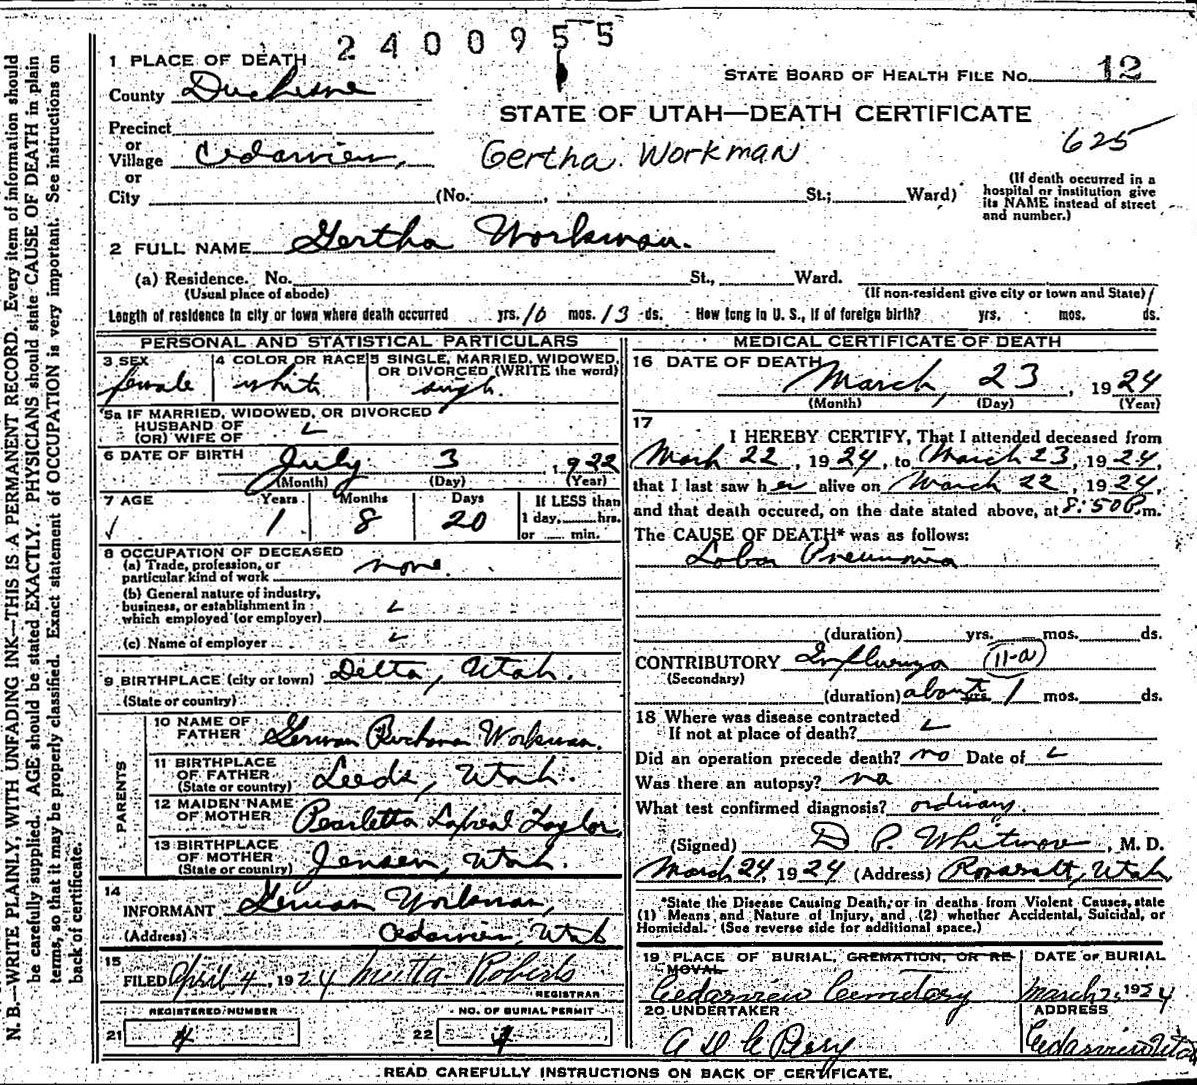 2400955
1 PLACE OF DEATH
STATE BOARD OF HEALTH FILE NO. 12
County Duchesne
STATE OF UTAH—DEATH CERTIFICATE
Precinct
or
Village Cedarview,
Gertha Workman
625
or
City (No. , St.; Ward)
(If death occurred in a
hospital or institution give
its NAME instead of street
and number.)
2 FULL NAME Gertha Workman.
(a) Residence. No. St., Ward.
(Usual place of abode)
(If non-resident give city or town and State)
Length of residence in city or town where death occurred yrs. 10 mos. 13 ds. How long in U. S., if of foreign birth? yrs. mos. ds.
PERSONAL AND STATISTICAL PARTICULARS
3 SEX
female
4 COLOR OR RACE
white
5 SINGLE, MARRIED, WIDOWED,
OR DIVORCED (WRITE the word)
single
5a IF MARRIED, WIDOWED, OR DIVORCED
HUSBAND OF
(OR) WIFE OF
6 DATE OF BIRTH July 3 1922
(Month) (Day) (Year)
7 AGE Years Months Days
1 8 20
If LESS than
1 day, hrs.
or min.
8 OCCUPATION OF DECEASED
(a) Trade, profession, or
particular kind of work none.
(b) General nature of industry,
business, or establishment in
which employed (or employer)
(c) Name of employer
9 BIRTHPLACE (city or town) Delta, Utah.
(State or country)
PARENTS
10 NAME OF
FATHER German Workman.
11 BIRTHPLACE
OF FATHER
(State or country) Leeds, Utah.
12 MAIDEN NAME
OF MOTHER Pearletta Taylor,
13 BIRTHPLACE
OF MOTHER
(State or country) Jensen, Utah.
14
INFORMANT German Workman,
(Address) Cedarview, Utah
15
FILED April 4, 1924 Roberts
REGISTRAR
REGISTERED NUMBER
21 4
NO. OF BURIAL PERMIT
22 4
MEDICAL CERTIFICATE OF DEATH
16 DATE OF DEATH
March 23, 1924
(Month) (Day) (Year)
17
I HEREBY CERTIFY, That I attended deceased from
March 22, 1924, to March 23, 1924,
that I last saw her alive on March 22, 1924,
and that death occured, on the date stated above, at 8:50 P.m.
The CAUSE OF DEATH* was as follows:
Lobar Pneumonia
(duration) yrs. mos. ds.
CONTRIBUTORY Influenza (11-a)
(Secondary)
(duration) about yrs. 1 mos. ds.
18 Where was disease contracted
If not at place of death?
Did an operation precede death? no Date of
Was there an autopsy? no
What test confirmed diagnosis? ordinary.
(Signed) D. P. Whitmore, M. D.
March 24, 1924 (Address) Roosevelt, Utah
*State the Disease Causing Death, or in deaths from Violent Causes, state
(1) Means and Nature of Injury, and (2) whether Accidental, Suicidal, or
Homicidal. (See reverse side for additional space.)
19 PLACE OF BURIAL, CREMATION, OR RE-
MOVAL
Cedarview Cemetery
DATE OF BURIAL
March 1924
20 UNDERTAKER
Perry
ADDRESS
Cedarview Utah
READ CAREFULLY INSTRUCTIONS ON BACK OF CERTIFICATE.
N. B.—WRITE PLAINLY, WITH UNFADING INK—THIS IS A PERMANENT RECORD. Every item of information should
be carefully supplied. AGE should be stated EXACTLY. PHYSICIANS should state CAUSE OF DEATH in plain
terms, so that it may be properly classified. Exact statement of OCCUPATION is very important. See instructions on
back of certificate.